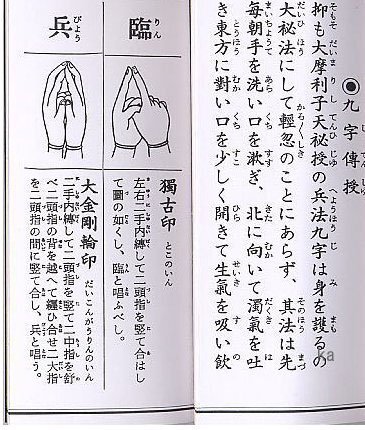 ◉九字傳授
抑も大摩利子天秘授の兵法九字は身を護るの
大祕法にして輕忽のことにあらず、其法は先
毎朝手を洗い口を漱ぎ、北に向いて濁氣を吐
き東方に對い口を少しく開きて生氣を吸い飲
ka
臨 りん
獨古印 とこのいん
左右二手内縛して二頭指を竪て合はし
て圖の如くし、臨と唱ふべし。
兵 びよう
大金剛輪印 だいこんがうりんのいん
二手内縛して二頭指を竪て二中指を舒
べ二頭指の背を越へて纏ひ合せ二大指
を二頭指の間に竪て合し、兵と唱う。